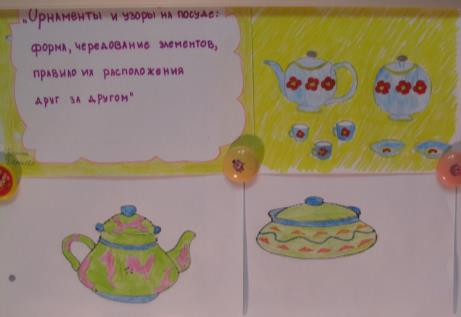 „Орнаменты и узоры на посуде:
форма, чередование элементов,
правило их расположения
друг за другом"